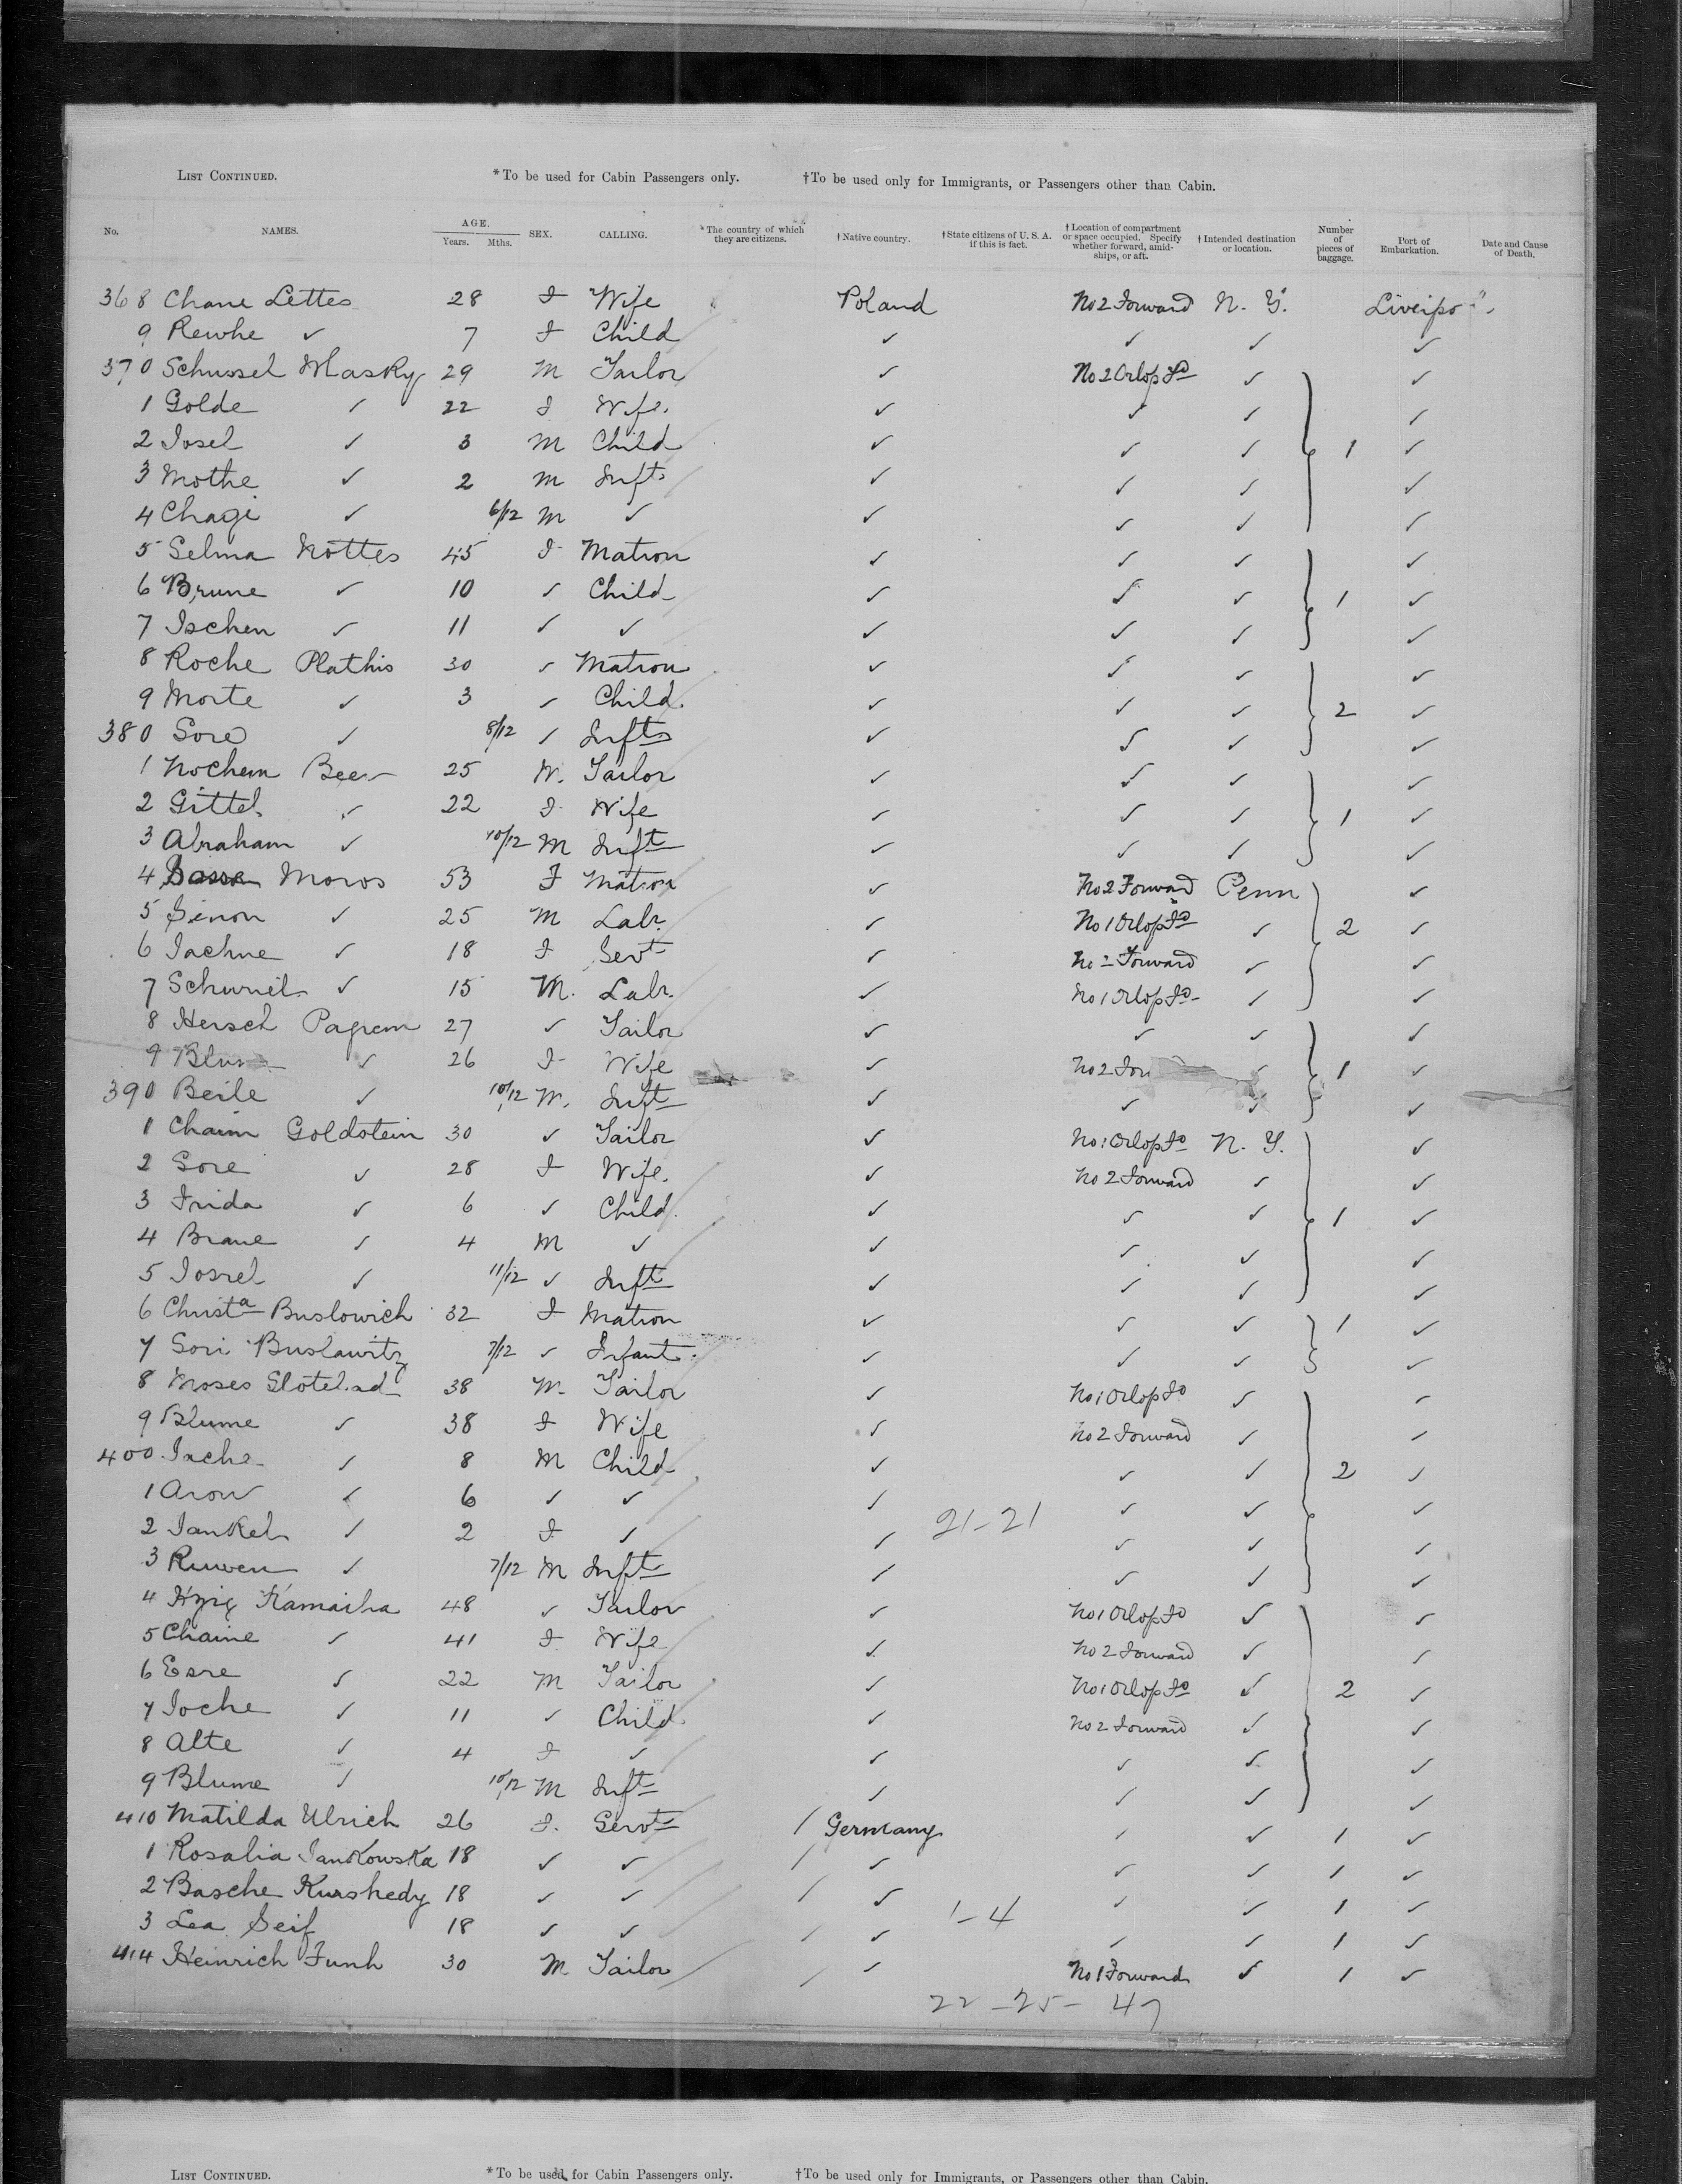 List Continued. *To be used for Cabin Passengers only. †To be used only for Immigrants, or Passengers other than Cabin.
No. NAMES. AGE. Years. Mths. SEX. CALLING. *The country of which they are citizens. †Native country. †State citizens of U. S. A. if this is fact. †Location of compartment or space occupied. Specify whether forward, amidships, or aft. †Intended destination or location. Number of pieces of baggage. Port of Embarkation. Date and Cause of Death.
368 Chane Lettes 28 F Wife Poland No 2 Forward N. Y.
9 Rewhe ✓ 7 F Child ✓ ✓ ✓ ✓
370 Schussel 29 M Tailor ✓ No 2 Orlop Fd ✓ ✓
1 Golde ✓ 22 F Wife. ✓ ✓ ✓ ✓
2 Josel ✓ 3 M Child ✓ ✓ ✓ 1 ✓
3 Mothe ✓ 2 M Inft ✓ ✓ ✓ ✓
4 Chage ✓ 6/12 M ✓ ✓ ✓ ✓ ✓
5 Selma Nottes 45 F Matron ✓ ✓ ✓ ✓
6 Brune ✓ 10 ✓ Child ✓ ✓ ✓ 1 ✓
7 Ischen ✓ 11 ✓ ✓ ✓ ✓ ✓ ✓
8 Roche Plathis 30 ✓ Matron ✓ ✓ ✓ ✓
9 Morte ✓ 3 ✓ Child. ✓ ✓ ✓ 2 ✓
380 Sore ✓ 8/12 ✓ Inft ✓ ✓ ✓ ✓
1 Nochem Beer 25 M. Tailor ✓ ✓ ✓ ✓
2 Gittel ✓ 22 F Wife ✓ ✓ ✓ 1 ✓
3 Abraham ✓ 10/12 M Inft ✓ ✓ ✓ ✓
4 Moros 53 F Matron ✓ No 2 Forward Penn ✓
5 Simon ✓ 25 M Labr. ✓ No 1 Orlop Fd ✓ 2 ✓
6 Jachne ✓ 18 F Servt ✓ No 2 Forward ✓ ✓
7 Schmiel ✓ 15 M. Labr. ✓ No 1 Orlop Fd ✓ ✓
8 Hersch Papiem 27 ✓ Tailor ✓ ✓ ✓ ✓
9 ✓ 26 F Wife ✓ No 2 For ✓ 1 ✓
390 Beile ✓ 10/12 M. Inft ✓ ✓ ✓ ✓
1 Chaim Goldstein 30 ✓ Tailor ✓ No 1 Orlop Fd N. Y. ✓
2 Sore ✓ 28 F Wife. ✓ No 2 Forward ✓ ✓
3 Frida ✓ 6 ✓ Child. ✓ ✓ ✓ 1 ✓
4 Brane ✓ 4 M ✓ ✓ ✓ ✓ ✓
5 Josrel ✓ 11/12 ✓ Inft ✓ ✓ ✓ ✓
6 Christa Buslowich 32 F Matron ✓ ✓ ✓ 1 ✓
7 Sori Buslawitz 7/12 ✓ Infant. ✓ ✓ ✓ ✓
8 Moses 38 M Tailor ✓ No 1 Orlop Fd ✓ ✓
9 Blume ✓ 38 F Wife ✓ No 2 Forward ✓ ✓
400 Jache ✓ 8 M Child ✓ ✓ ✓ 2 ✓
1 Aron ✓ 6 ✓ ✓ ✓ ✓ ✓ ✓
21-21
2 Jankel ✓ 2 F ✓ ✓ ✓ ✓ ✓
3 Ruwen ✓ 7/12 M Inft ✓ ✓ ✓ ✓
4 Kamaiha 48 ✓ Tailor ✓ No 1 Orlop Fd ✓ ✓
5 Chaine ✓ 41 F Wife ✓ No 2 Forward ✓ ✓
6 Esre ✓ 22 M Tailor ✓ No 1 Orlop Fd ✓ 2 ✓
7 Joche ✓ 11 ✓ Child ✓ No 2 Forward ✓ ✓
8 Alte ✓ 4 F ✓ ✓ ✓ ✓ ✓
9 Blume ✓ 10/12 M Inft ✓ ✓ ✓ ✓
410 Matilda Ulrich 26 F. Servt / Germany ✓ ✓ 1 ✓
1 Rosalia Jankowska 18 ✓ ✓ / ✓ ✓ ✓ 1 ✓
2 Basche Kurshedy 18 ✓ ✓ / ✓ ✓ ✓ 1 ✓
1-4
3 Lea Seif 18 ✓ ✓ / ✓ ✓ ✓ 1 ✓
414 Heinrich Funh 30 M Tailor / ✓ No 1 Forward ✓ 1 ✓
22-25-47
List Continued. *To be used for Cabin Passengers only. †To be used only for Immigrants, or Passengers other than Cabin.